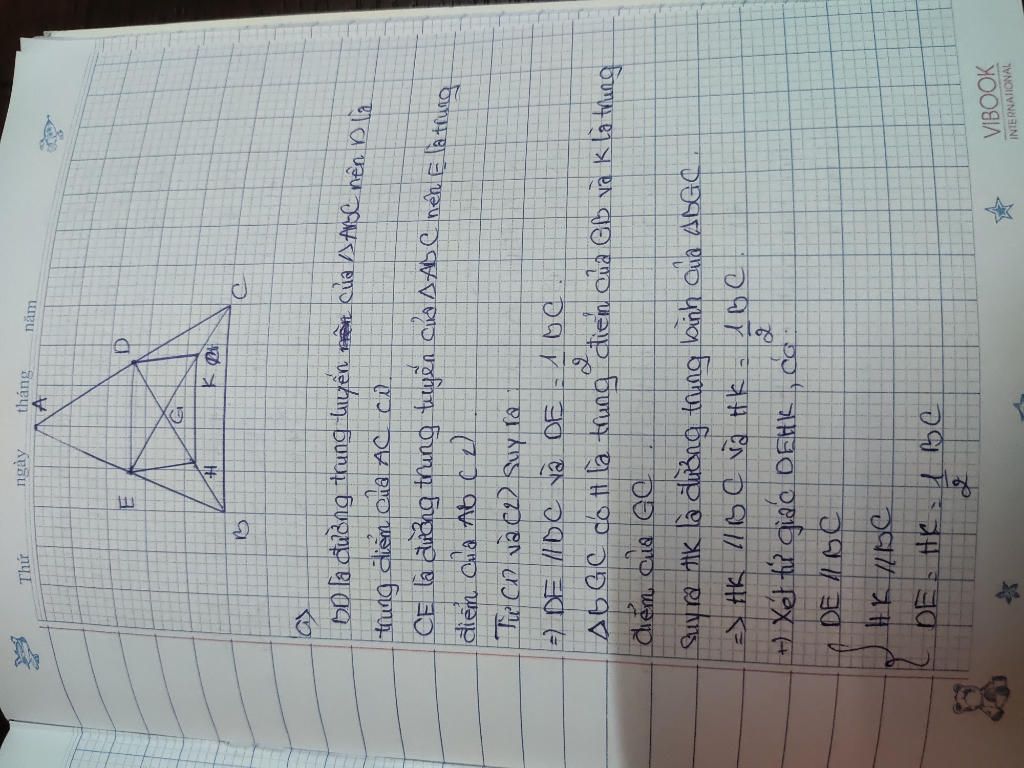 Thứ ngày tháng năm
A
E
D
G
H
K
B
C
a)
BD là đường trung tuyến của ΔABC nên D là
trung điểm của AC (1)
CE là đường trung tuyến của ΔABC nên E là trung
điểm của AB (2)
Từ (1) và (2) suy ra:
=> DE // BC và DE = 1/2 BC.
ΔBGC có H là trung điểm của GB và K là trung
điểm của GC.
Suy ra HK là đường trung bình của ΔBGC.
=> HK // BC và HK = 1/2 BC.
+) Xét tứ giác DEHK, có:
DE // BC
HK // BC
DE = HK = 1/2 BC
VIBOOK
INTERNATIONAL